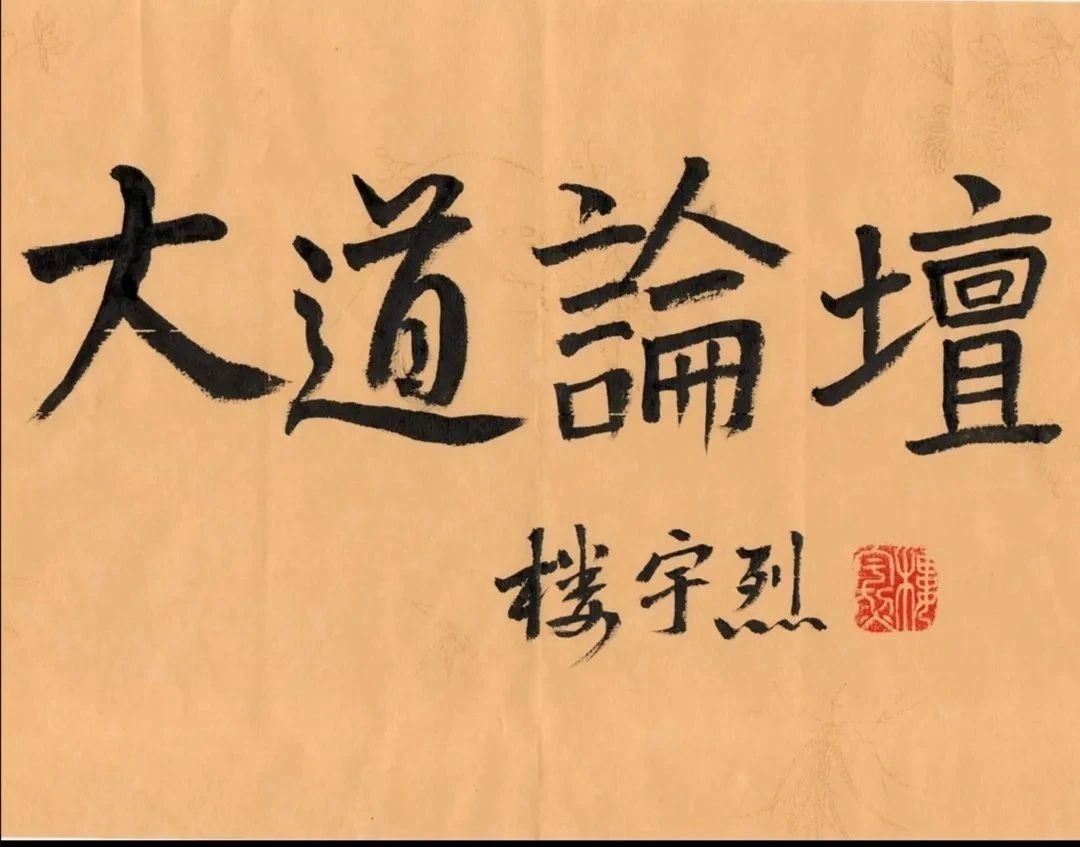 大道論壇
楼宇烈
樓宇烈